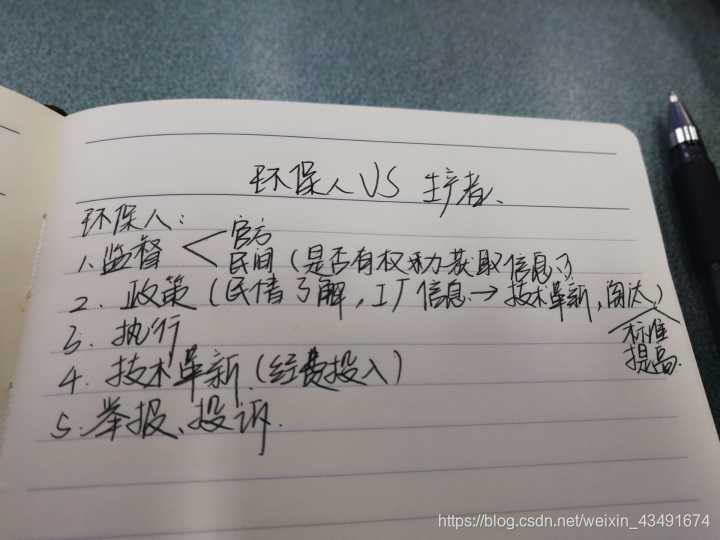 环保人 VS 生产者、
环保人：
官方
1、监督
民间（是否有权利获取信息？）
2、政策（民情了解，工厂信息→技术革新，淘汰）
标准
3、执行
提高
4、技术革新（经费投入）
5、举报、投诉.
https://blog.csdn.net/weixin_43491674